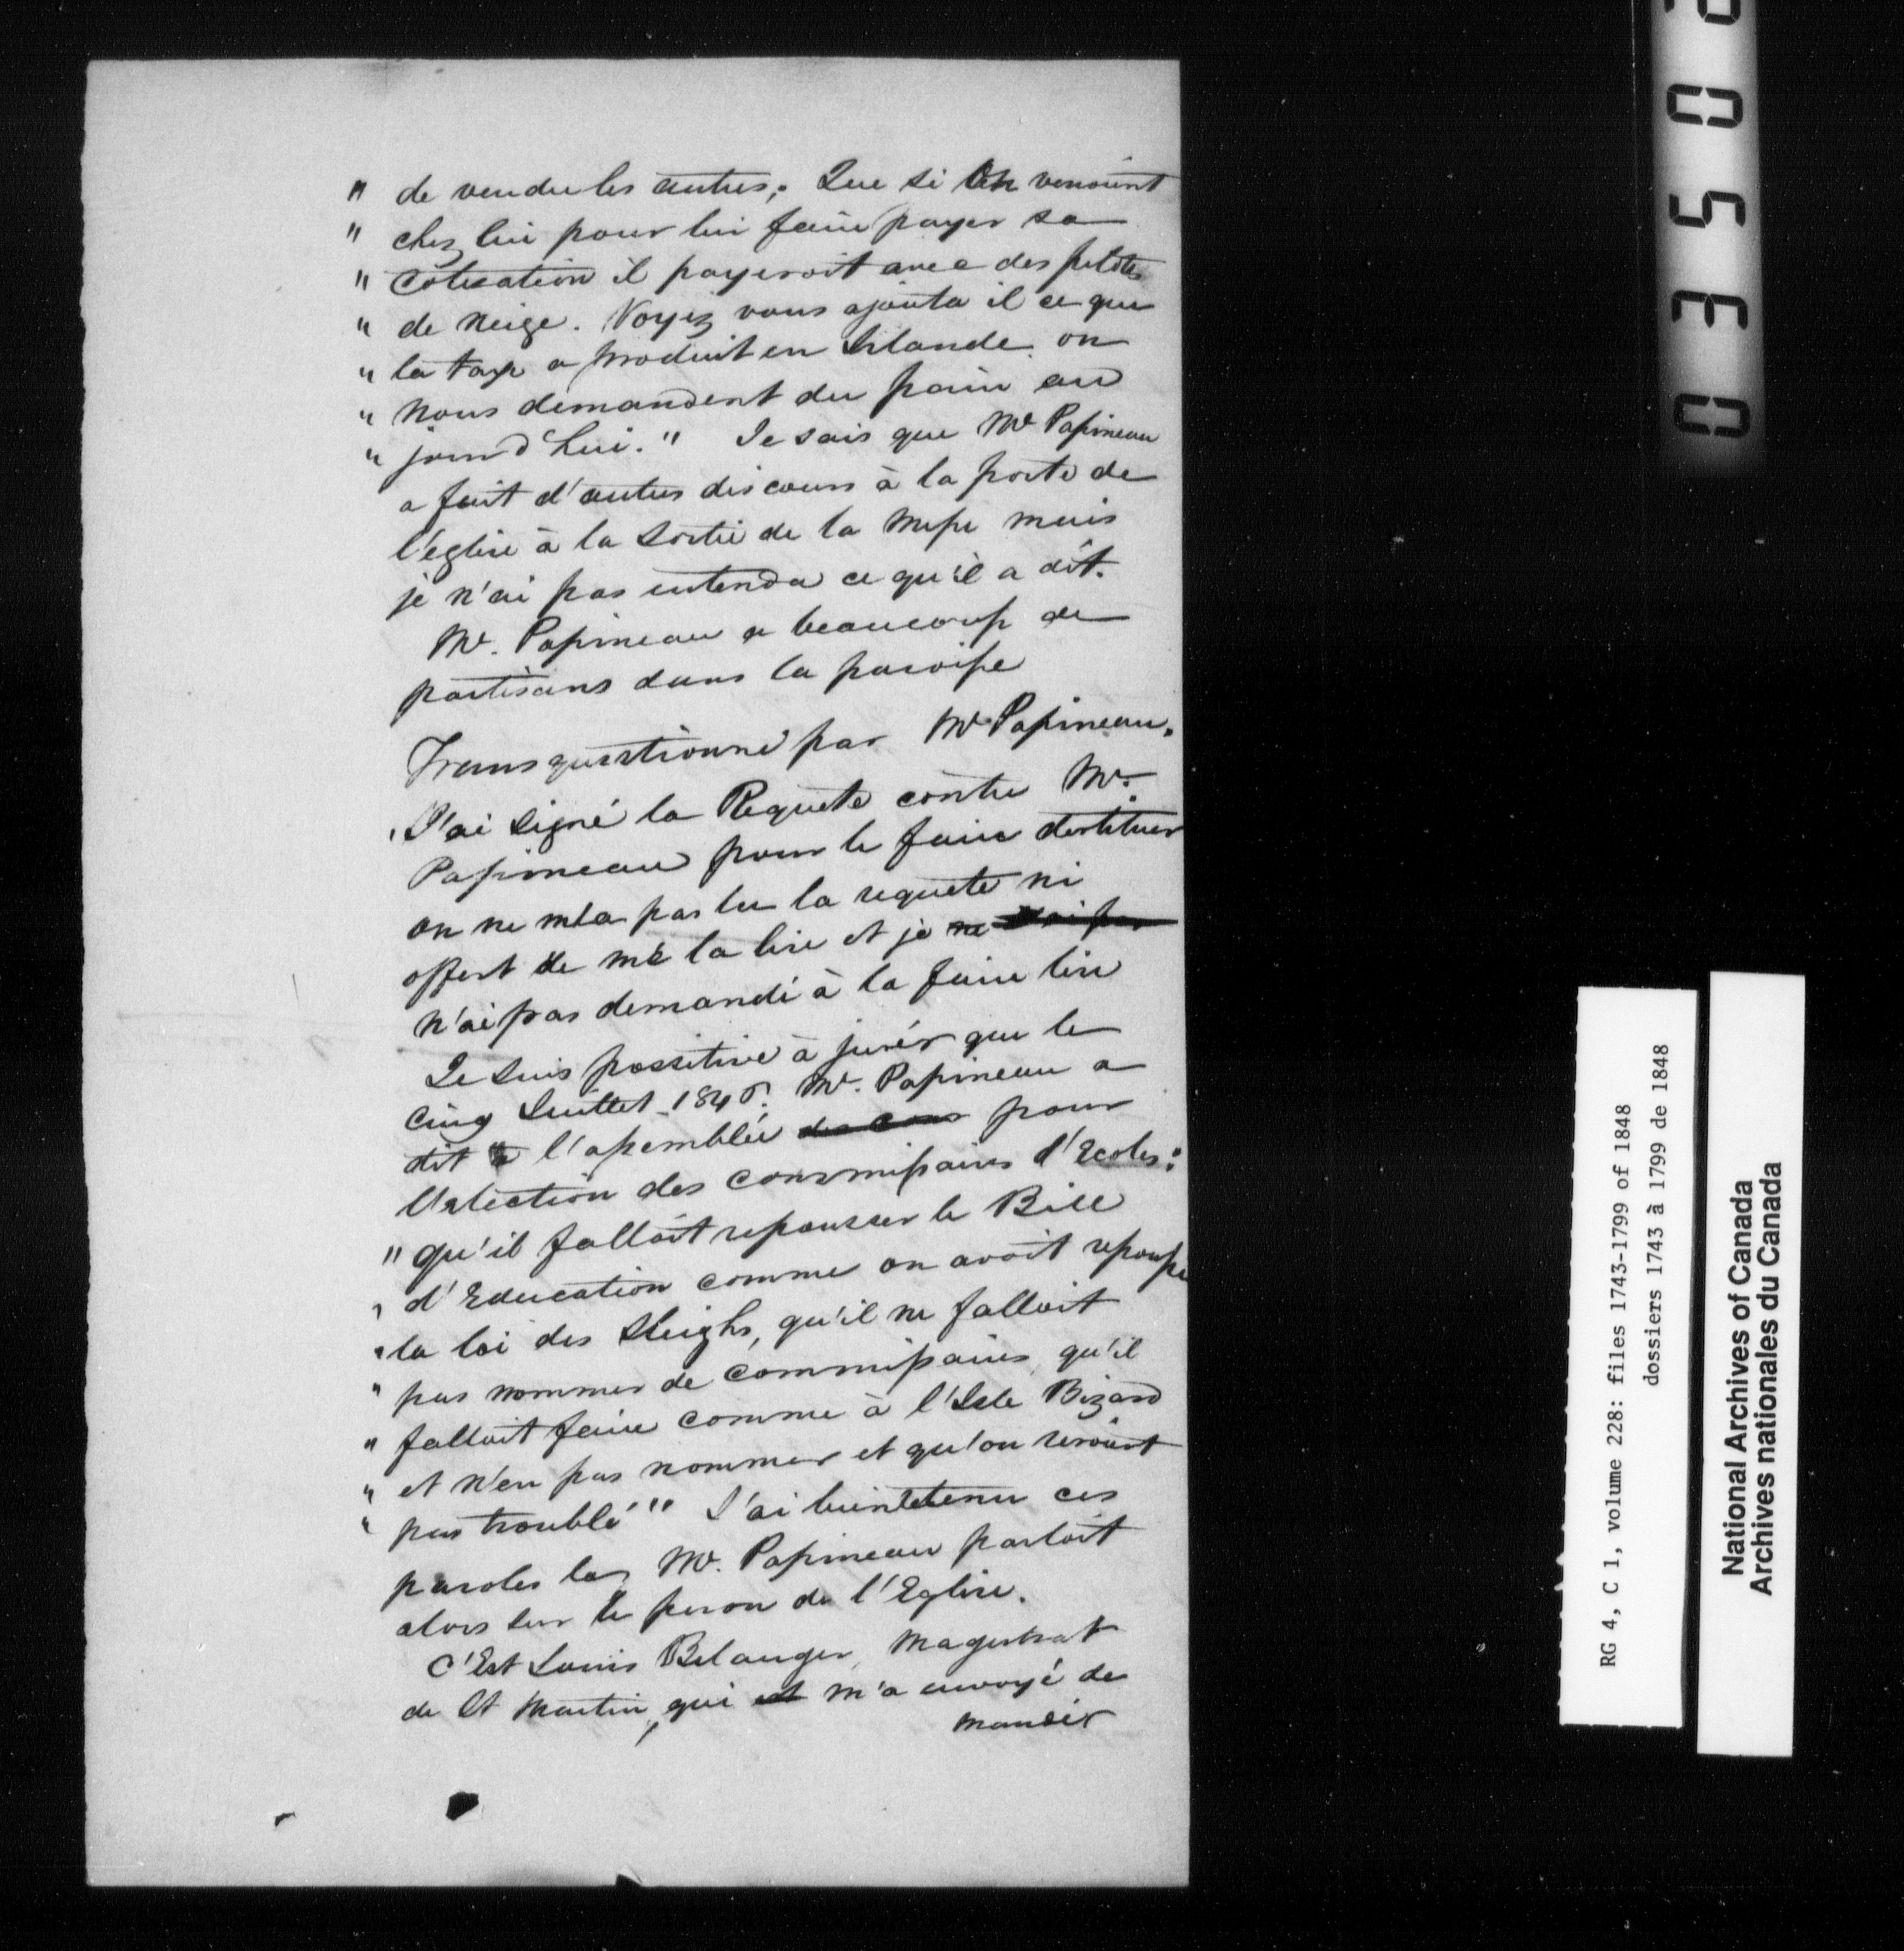 " de vendre les autres; Que si on venoient
" chez lui pour lui faire payer sa
" cotisation il payeroit avec des pelotes
" de neige. Voyez vous ajouta il ce que
" la taxe a produit en Irlande on
" nous demandent du pain au
" jourd'hui." Je sais que Mr Papineau
a fait d'autres discours à la porte de
l'eglise à la sortie de la messe mais
je n'ai pas entendu ce qu'il a dit.
Mr. Papineau a beaucoup de
partisans dans la paroisse
Transquestionné par Mr Papineau.
J'ai signé la Requete contre Mr.
Papineau pour le faire destituer
on ne m'a pas lu la requete ni
offert de me la lire et je ne
n'ai pas demandé à la faire lire
Je suis possitive à jurér que le
cinq Juillet 1846. Mr. Papineau a
dit à l'assemblée pour
l'election des commissaires d'Ecoles:
" qu'il falloit repousser le Bill
" d'Education comme on avoit repoussé
" la loi des Sleighs, qu'il ne falloit
" pas nommer de commissaires qu'il
" falloit faire comme à l'Isle Bizard
" et n'en pas nommer et qu'on seroient
" pas troublé" J'ai bien entenu ces
paroles la, Mr. Papineau parloit
alors sur le peron de l'Eglise.
C'Est Louis Belanger, Magistrat
de St Martin, qui est m'a envoyé de
mander
03502
RG 4, C 1, volume 228: files 1743-1799 of 1848
dossiers 1743 à 1799 de 1848
National Archives of Canada
Archives nationales du Canada